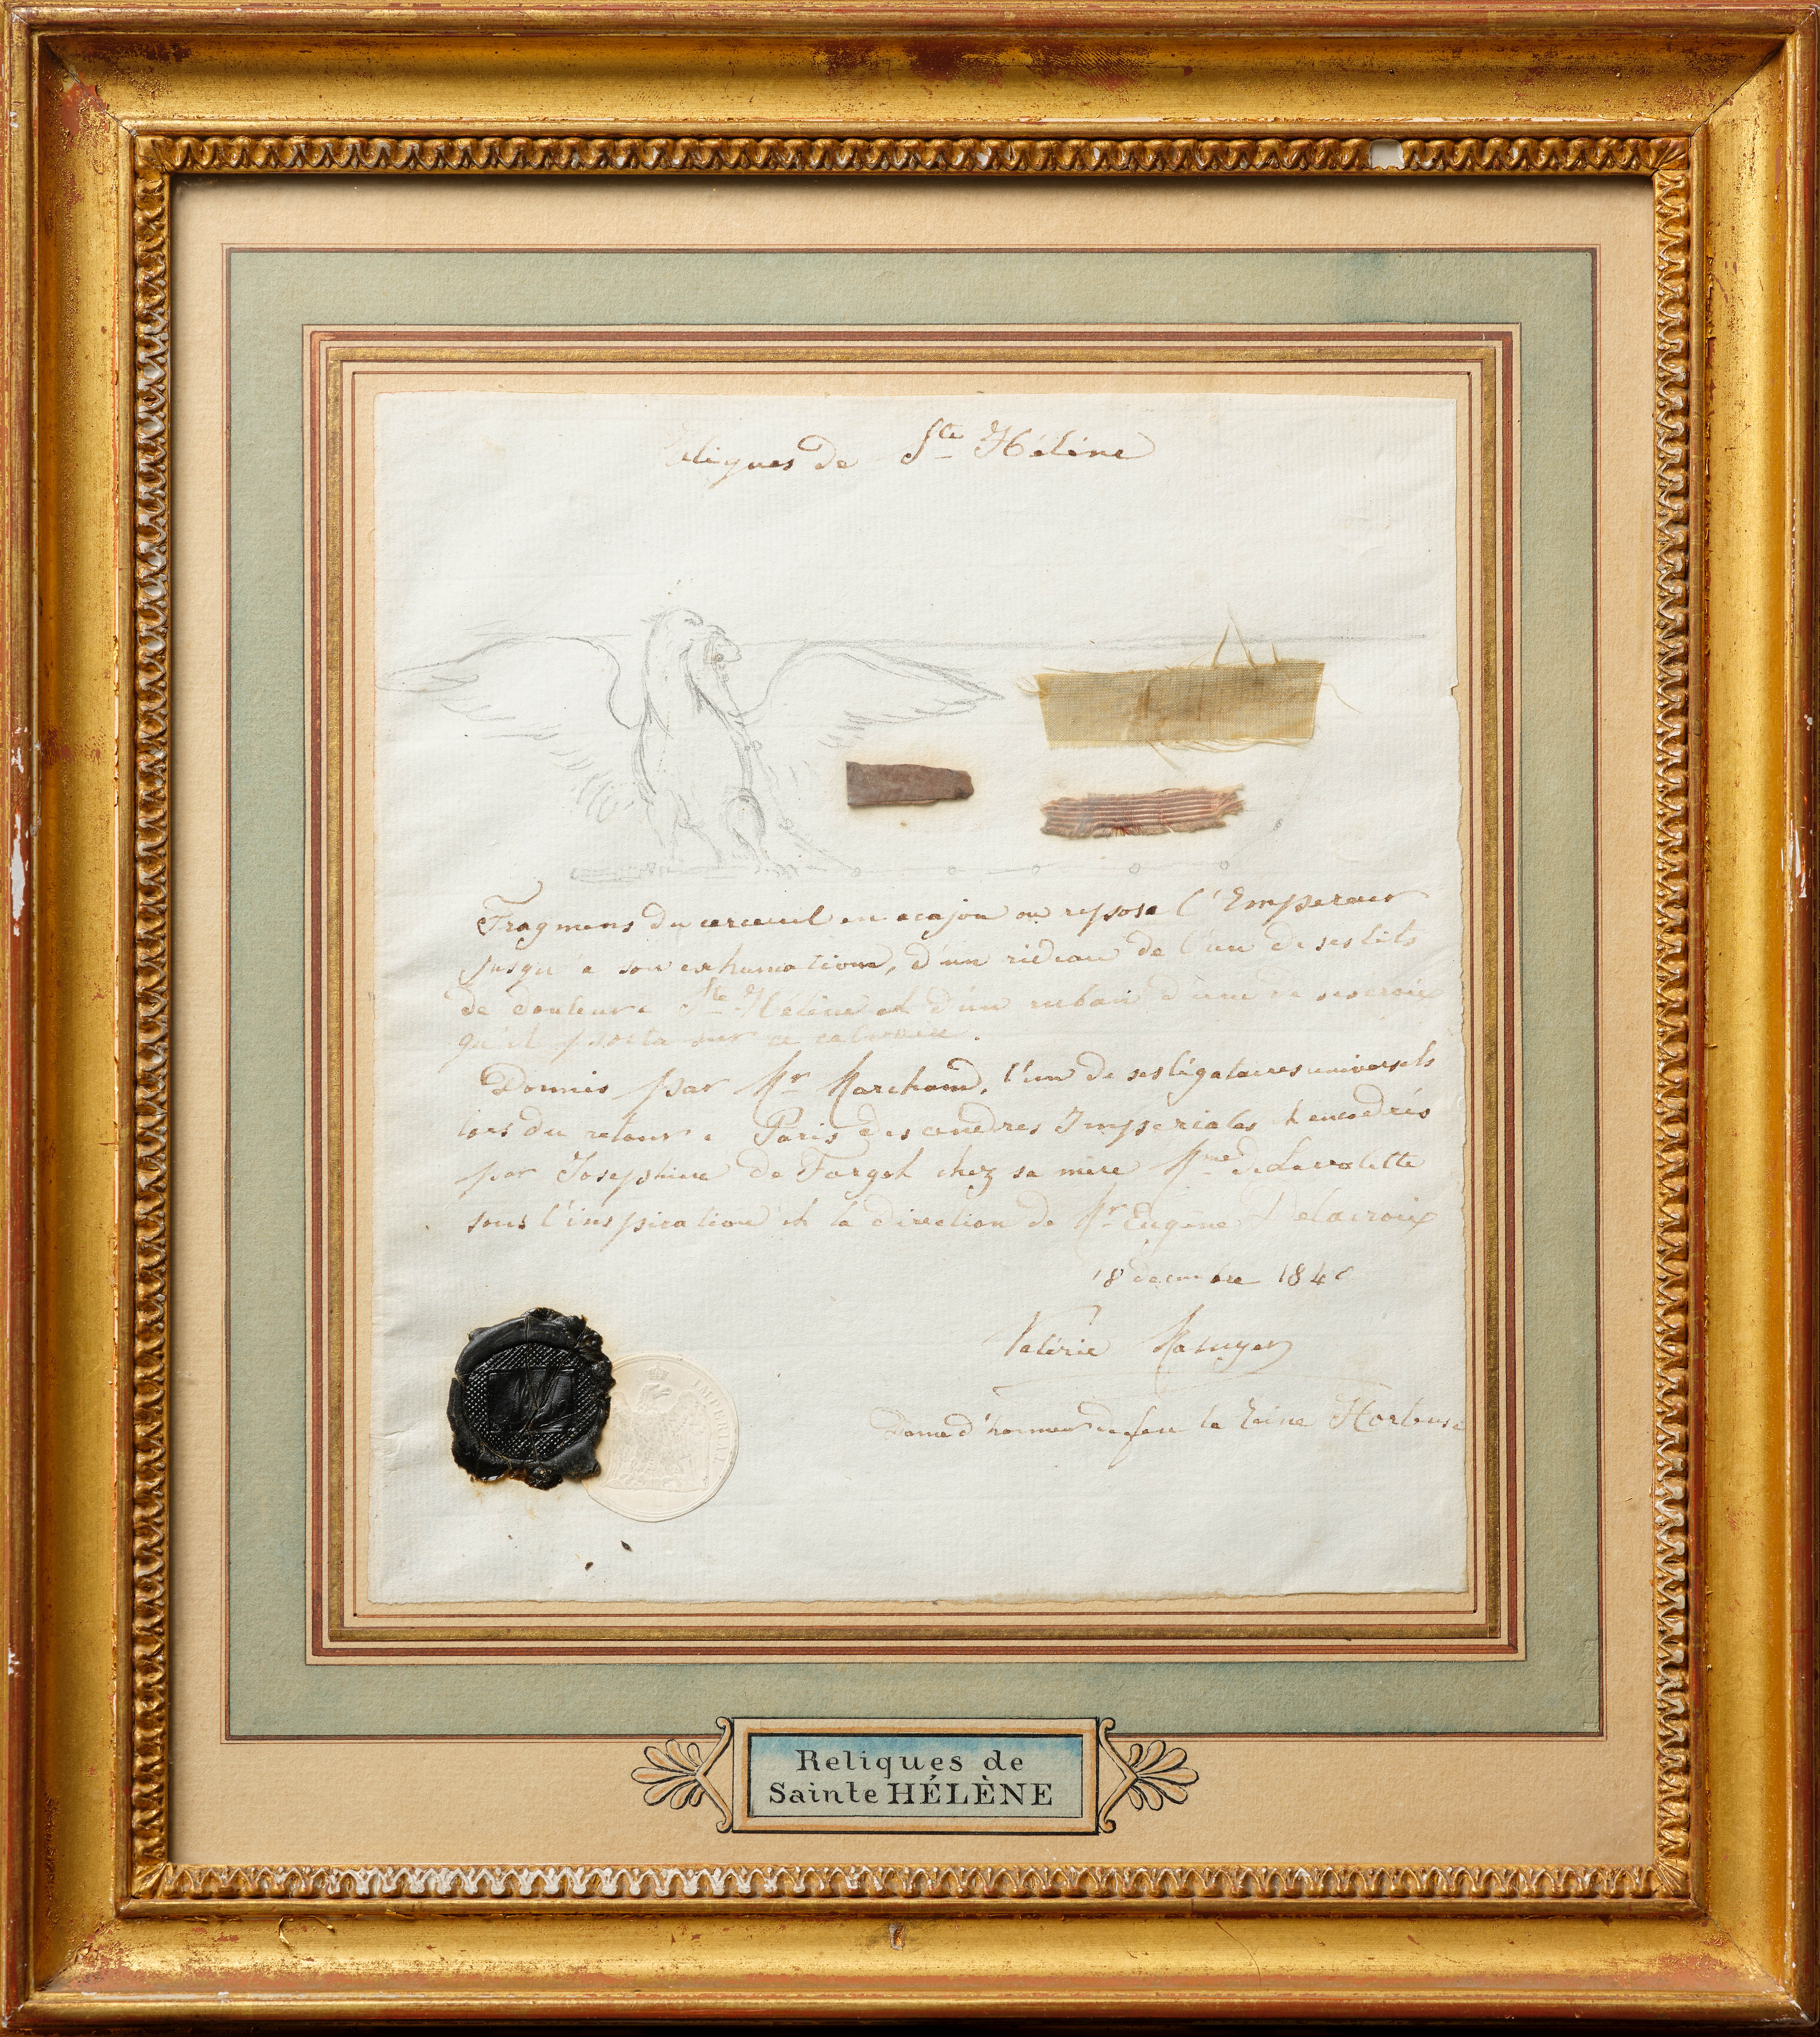 Reliques de Ste Hélène
Fragmens du cerceuil en acajou ou reposa l'Empereur
jusqu'a son exhumation, d'un rideau de l'un de ses lits
de douleur a Ste Hélène et d'un ruban d'une de ses croix
qu'il porta sur ce calvaire.
Donnés par Mr Marchand, l'un de ses légataires universels
lors du retour a Paris des cendres Impériales et encadrés
par Joséphine de Forget chez sa mère Mme de Lavalette
sous l'inspiration et la direction de Mr Eugène Delacroix
18 decembre 1840
Valérie Masuyer
Dame d'honneur de feu la Reine Hortense
IMPERIALE
Reliques de
Sainte HÉLÈNE